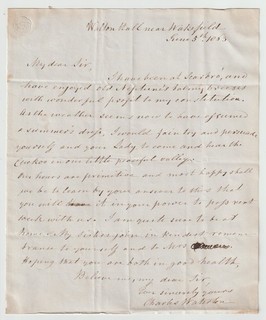 Walton Hall near Wakefield
June 3d 18
My dear Sir,
I have been at Scarbro', and
have enjoyed old Neptune's briny
with wonderful profit to my constitution.
As the weather seems now to have assumed
a summer's dress, I would fain try and persuade
yourself and your Lady to come and hear the
cuckoo in our little peaceful valley.
Our hours are primitive and most happy shall
we be to learn by your answer to this that
you will have it in your power to pass next
week with us. I am quite sure to be at
home. My sisters join in kindest remem
brance to yourself and to Mrs
Hoping that you are both in good health,
Believe me, my dear Sir,
very sincerely yours
Charles Waterton